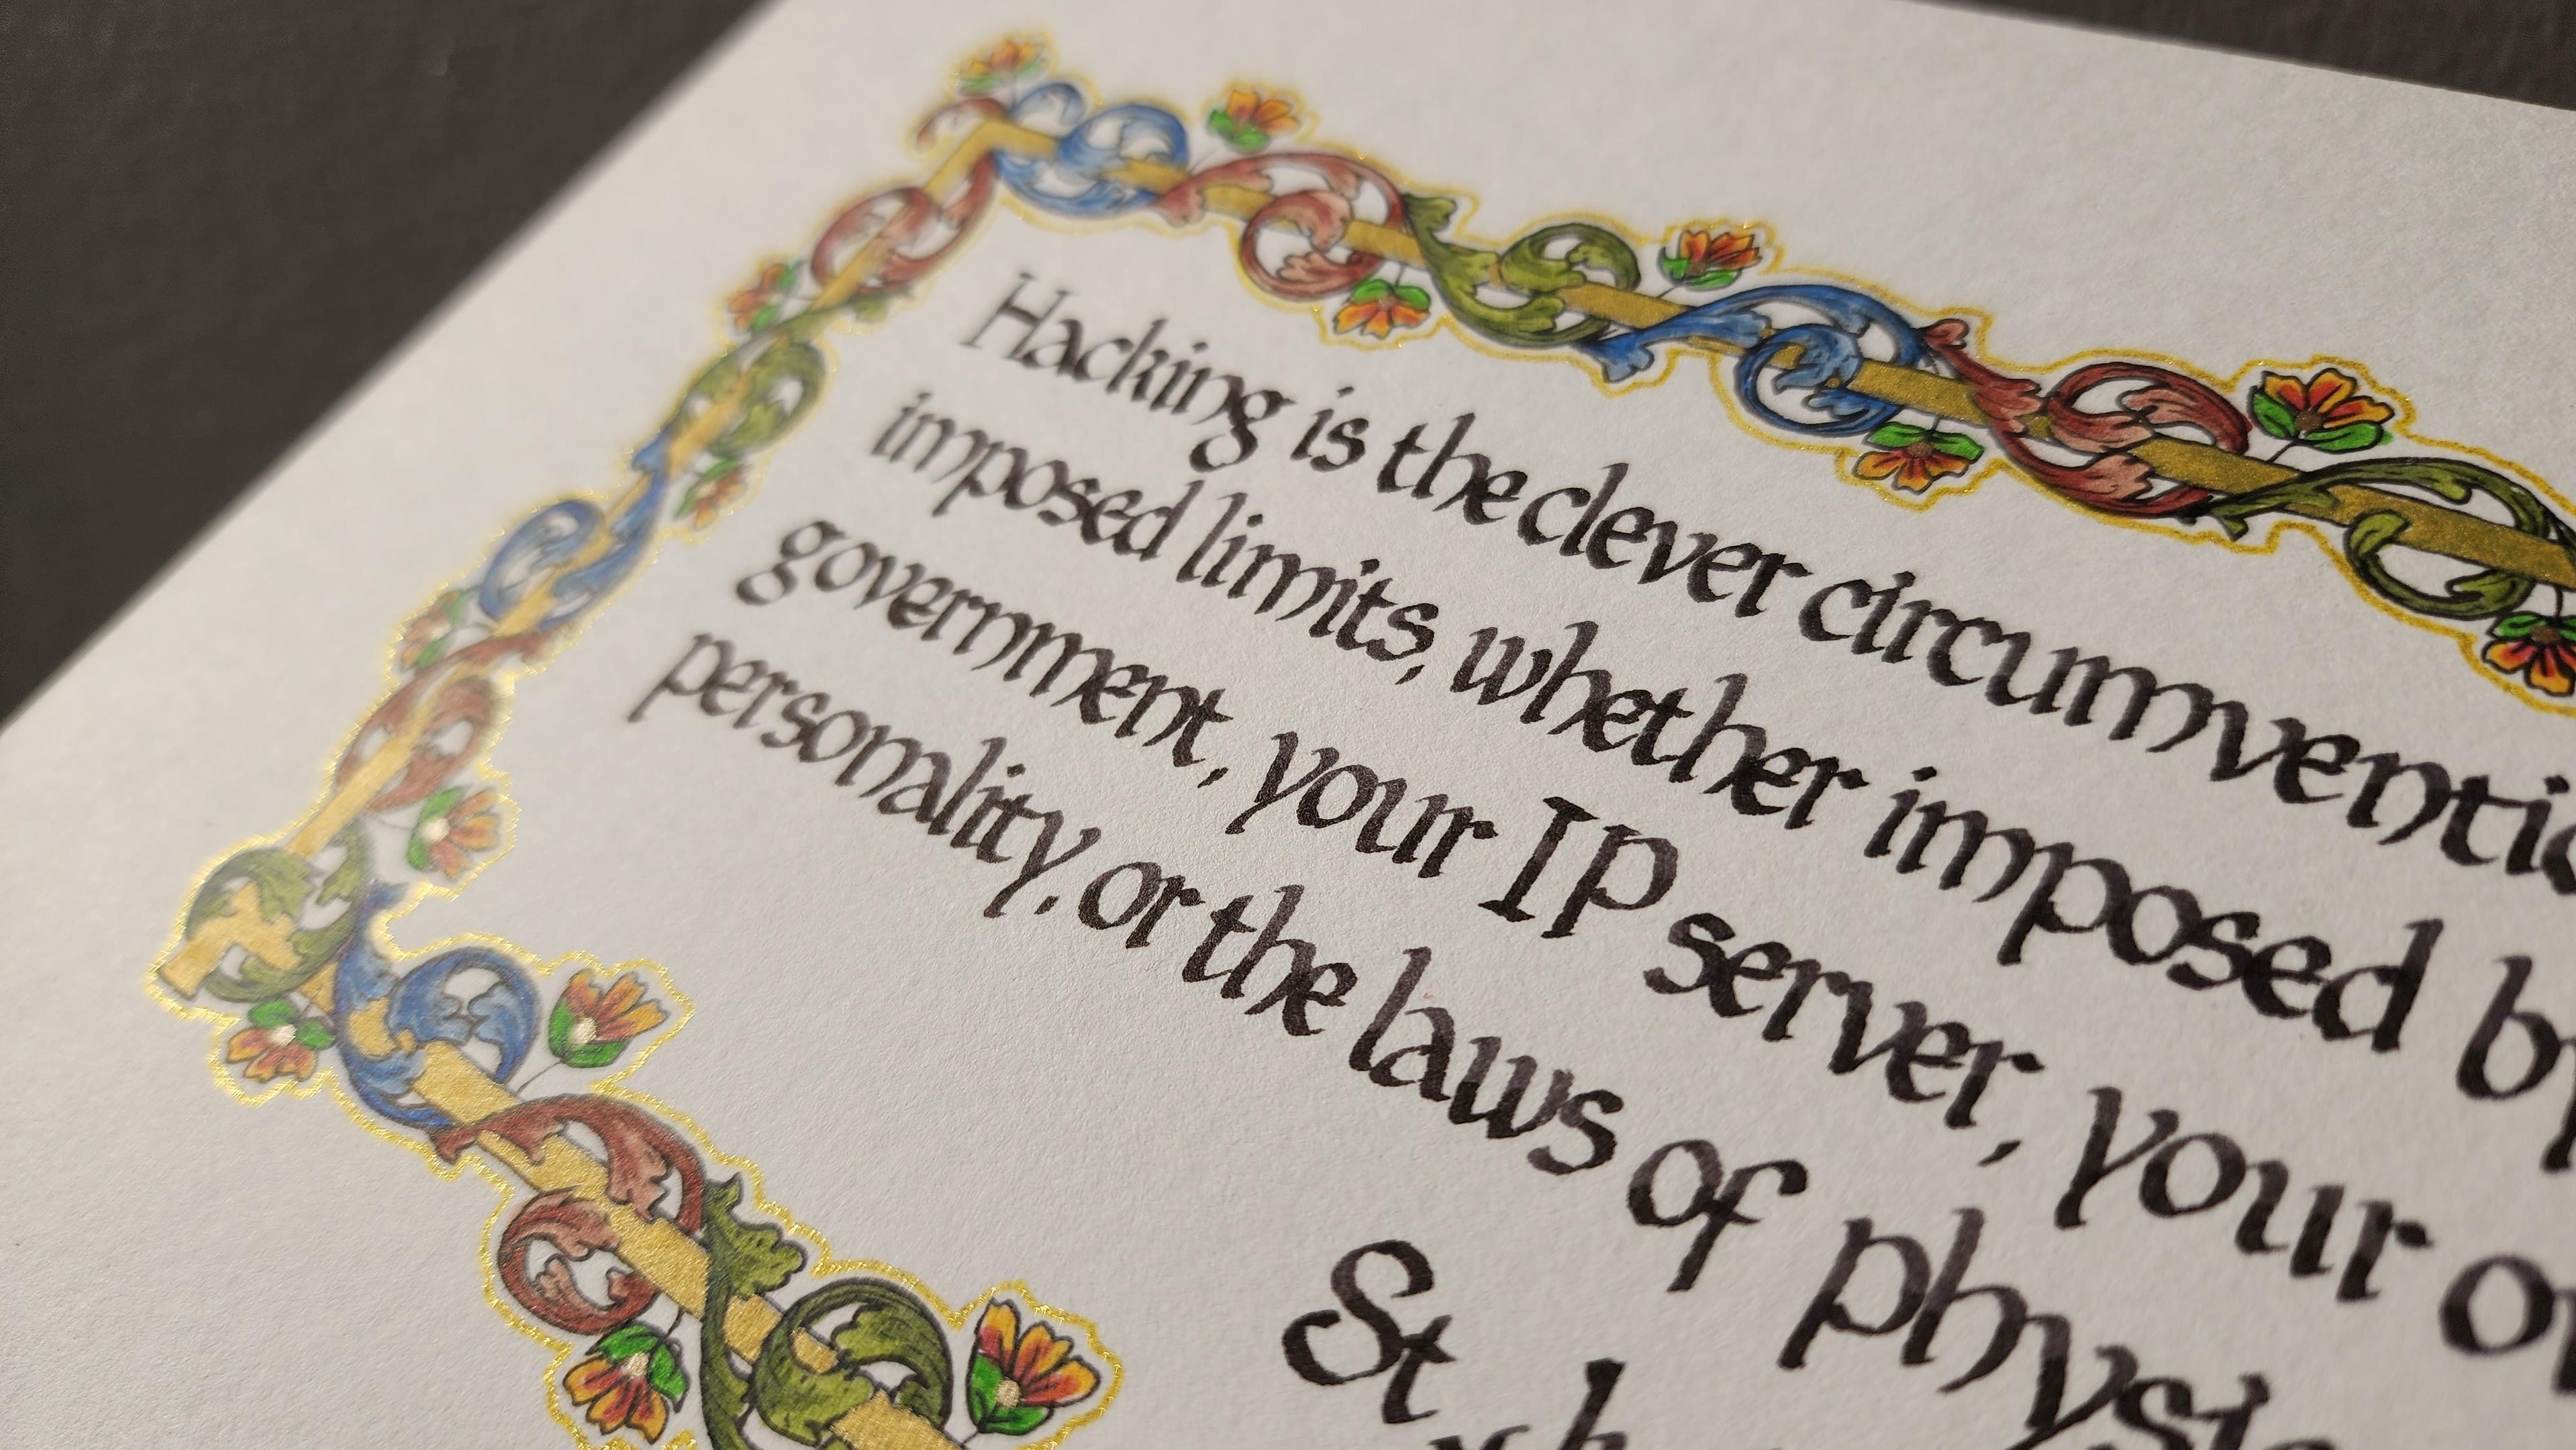 Hacking is the clever circumventio
imposed limits, whether imposed by
government, your IP server, your ow
personality, or the laws of physic
St